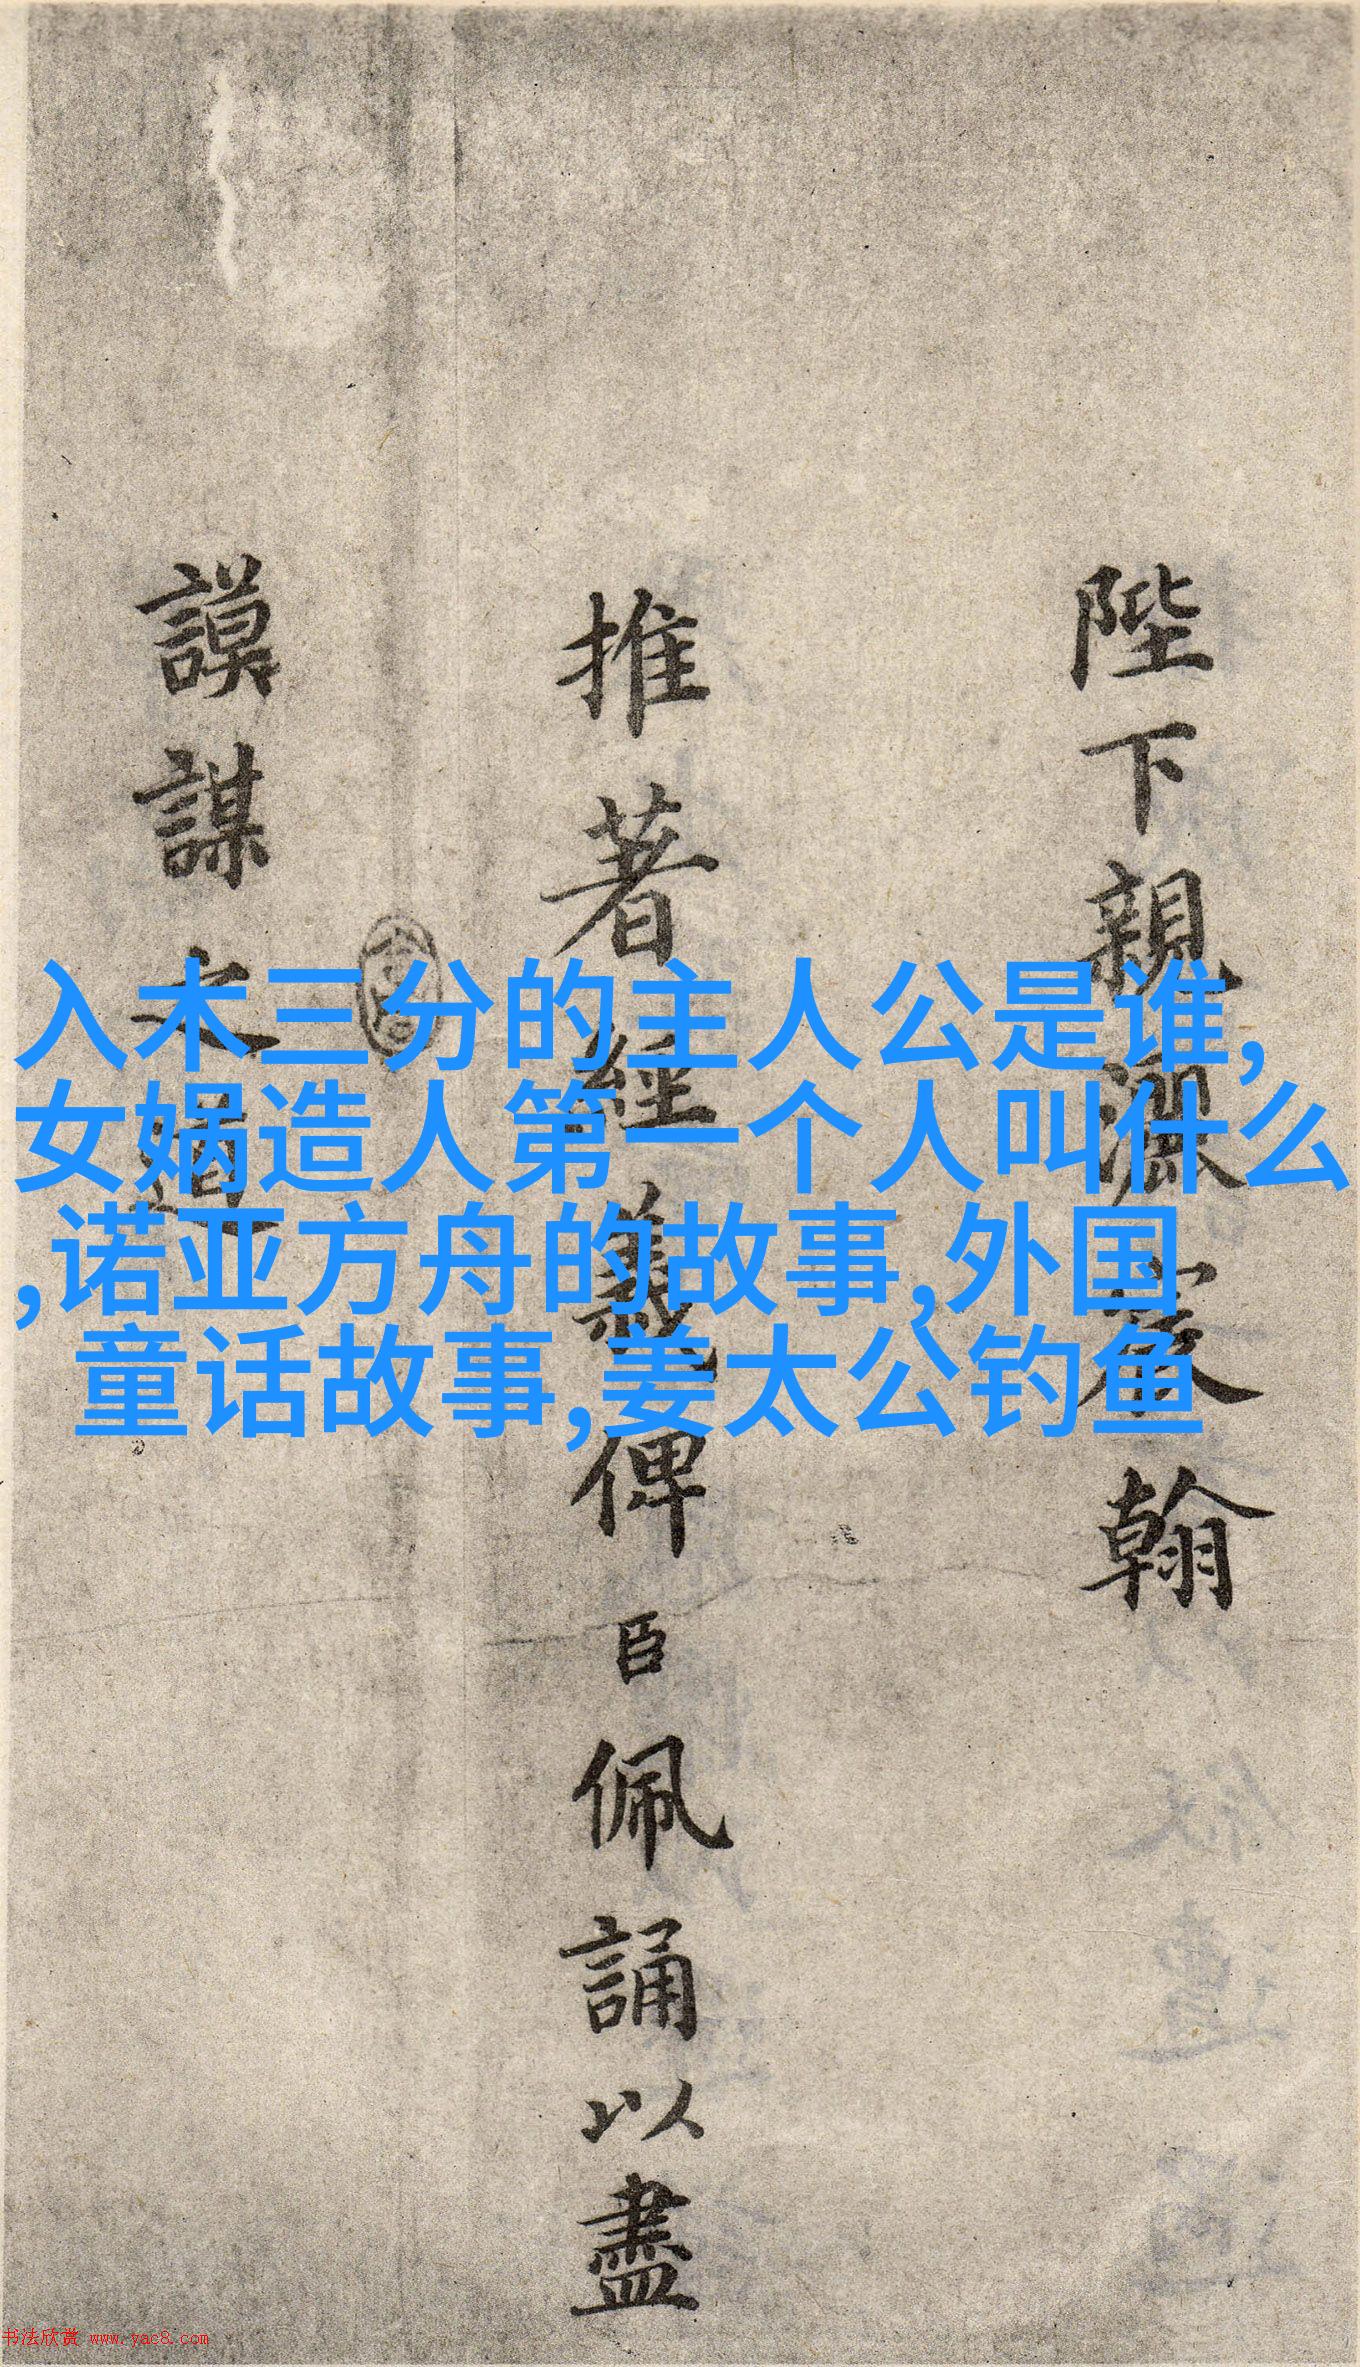 陛下親灑宸翰
推著經義俾臣佩誦以盡
謨謀之道
入木三分的主人公是谁,
女娲造人第一个人叫什么
,诺亚方舟的故事,外国
童话故事,姜太公钓鱼
书法欣赏 www.yac8.com